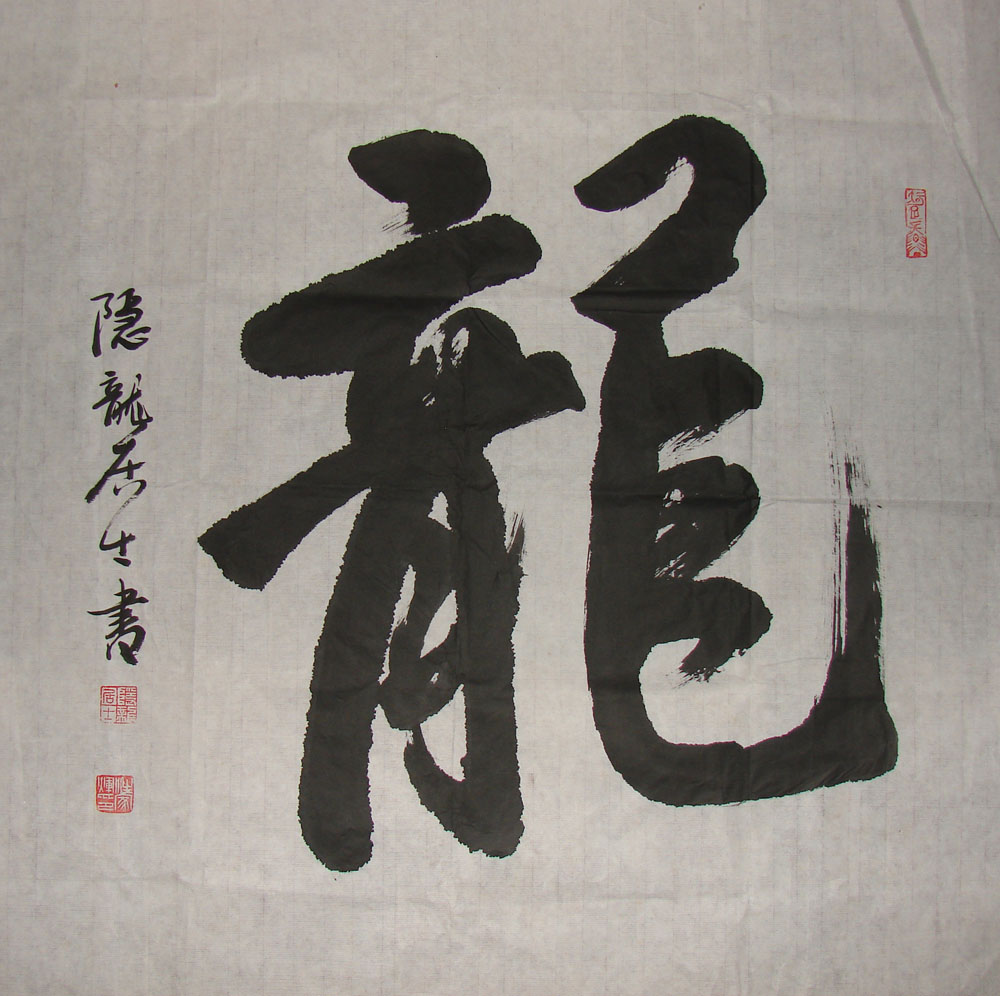 龍
隐龍居士書